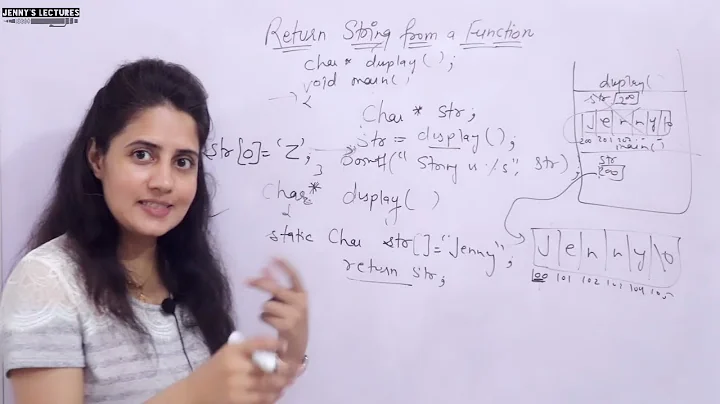 JENNY'S LECTURES
Return String from a Function
char* display();
void main()
{
Char * str;
str = display();
str[0]='Z';
printf("String is %s", str);
}
Char* display( )
{
static Char str[]="Jenny";
return str;
display(
str 200
J e n n y \0
200 201 202
main()
str
100
J e n n y \0
100 101 102 103 104 105